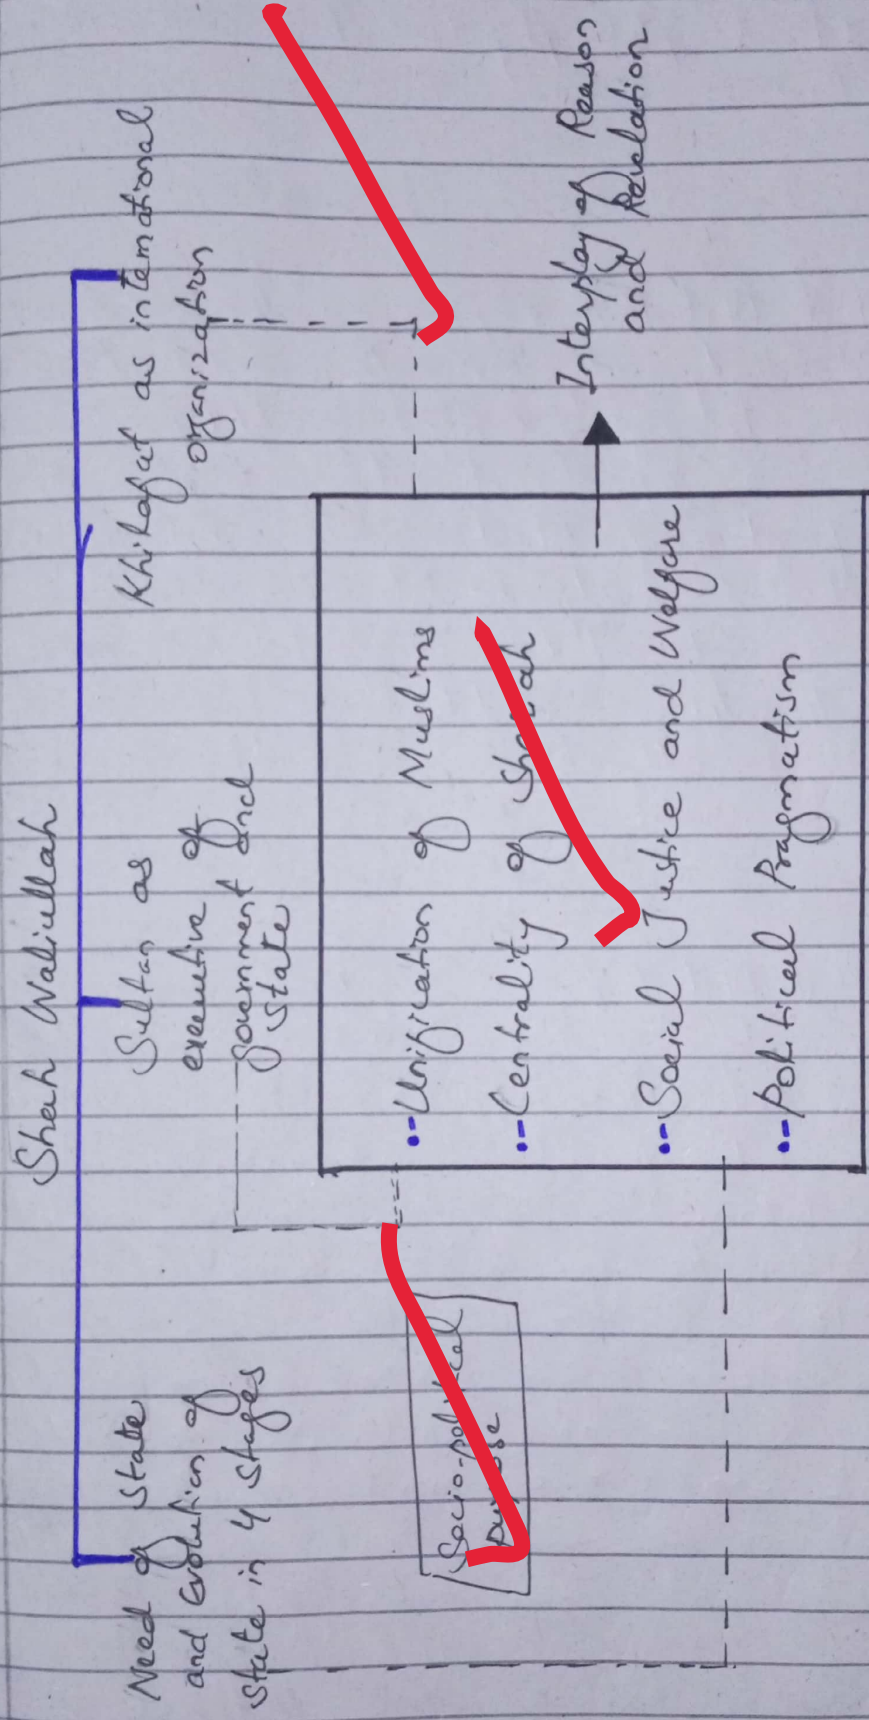 Shah Waliullah
Need of State
and Evolution of
State in 4 stages
Sultan as
executive of
government and
state
Khilafat as international
organization
Socio-political
purpose
Unification of Muslims
Centrality of Shariah
Social Justice and Welfare
Political Pragmatism
Interplay of Reason
and Revelation